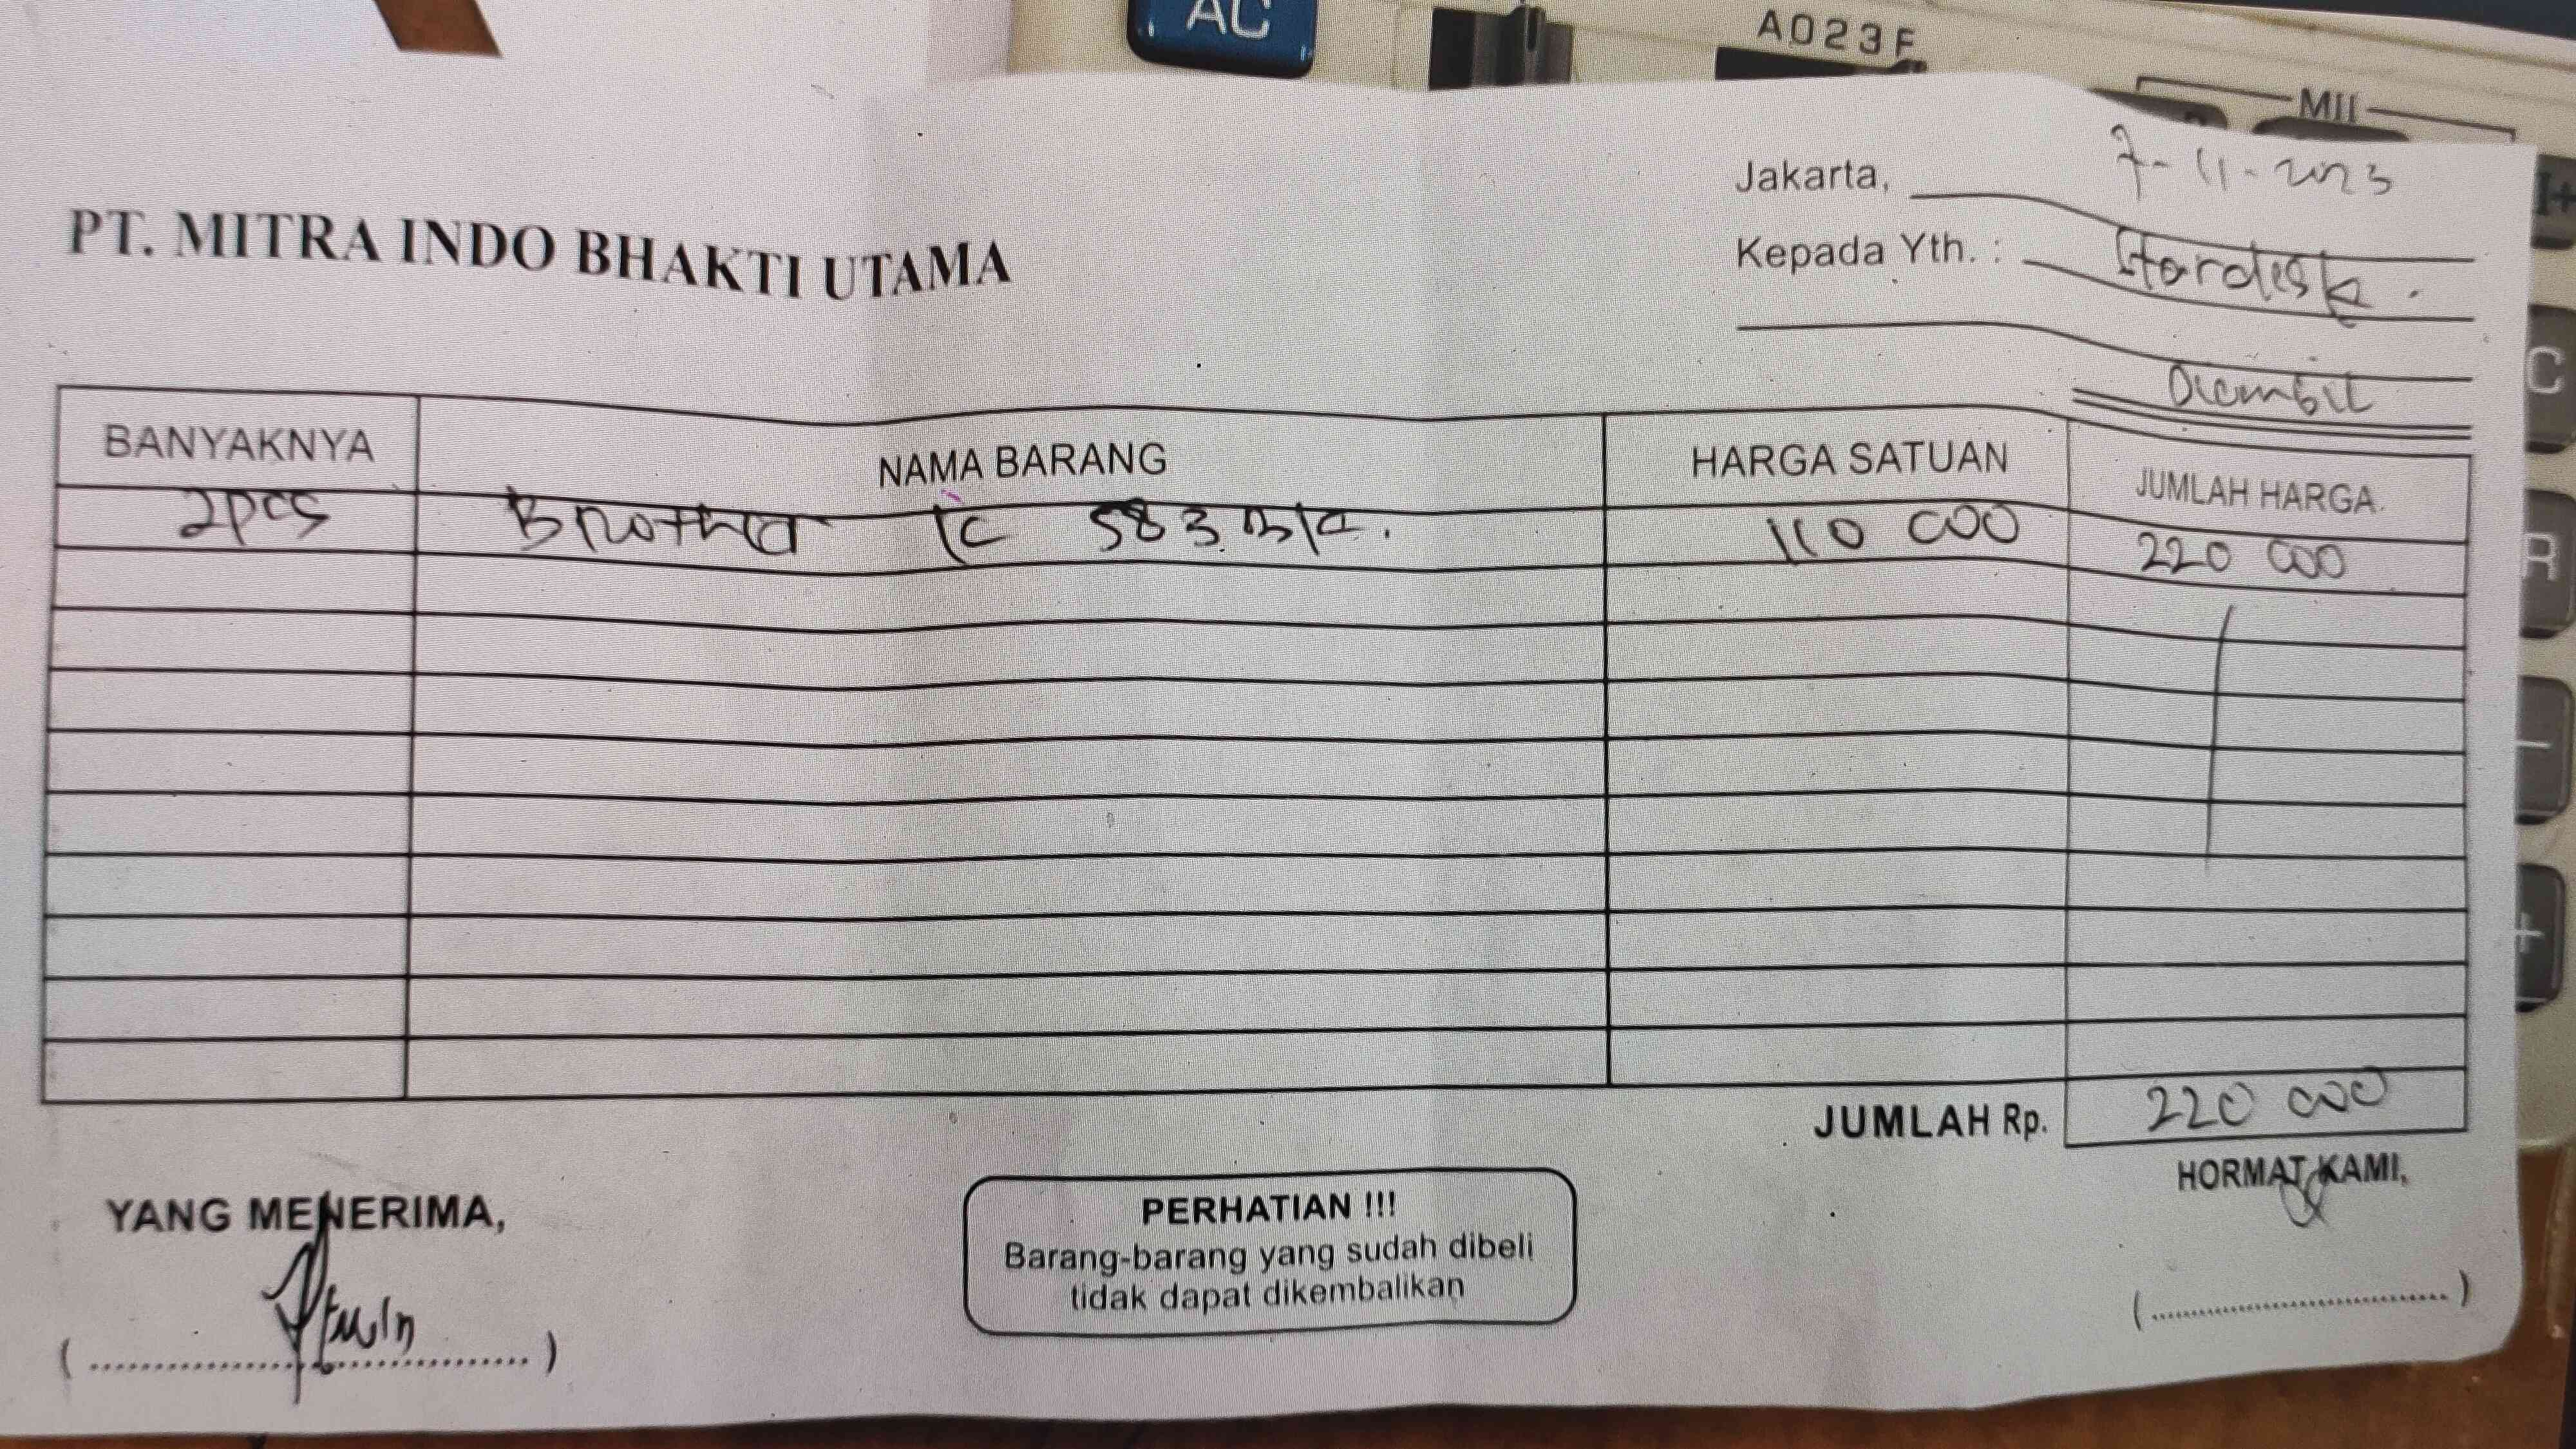 AC
A023F
MII
Jakarta, 7-11-2023
PT. MITRA INDO BHAKTI UTAMA
Kepada Yth. : Hardisk.
Diambil
BANYAKNYA NAMA BARANG HARGA SATUAN JUMLAH HARGA
2pcs Brother 583 Bk. 110 000 220 000
JUMLAH Rp. 220 000
YANG MENERIMA, HORMAT KAMI,
PERHATIAN !!!
Barang-barang yang sudah dibeli
tidak dapat dikembalikan
C
R